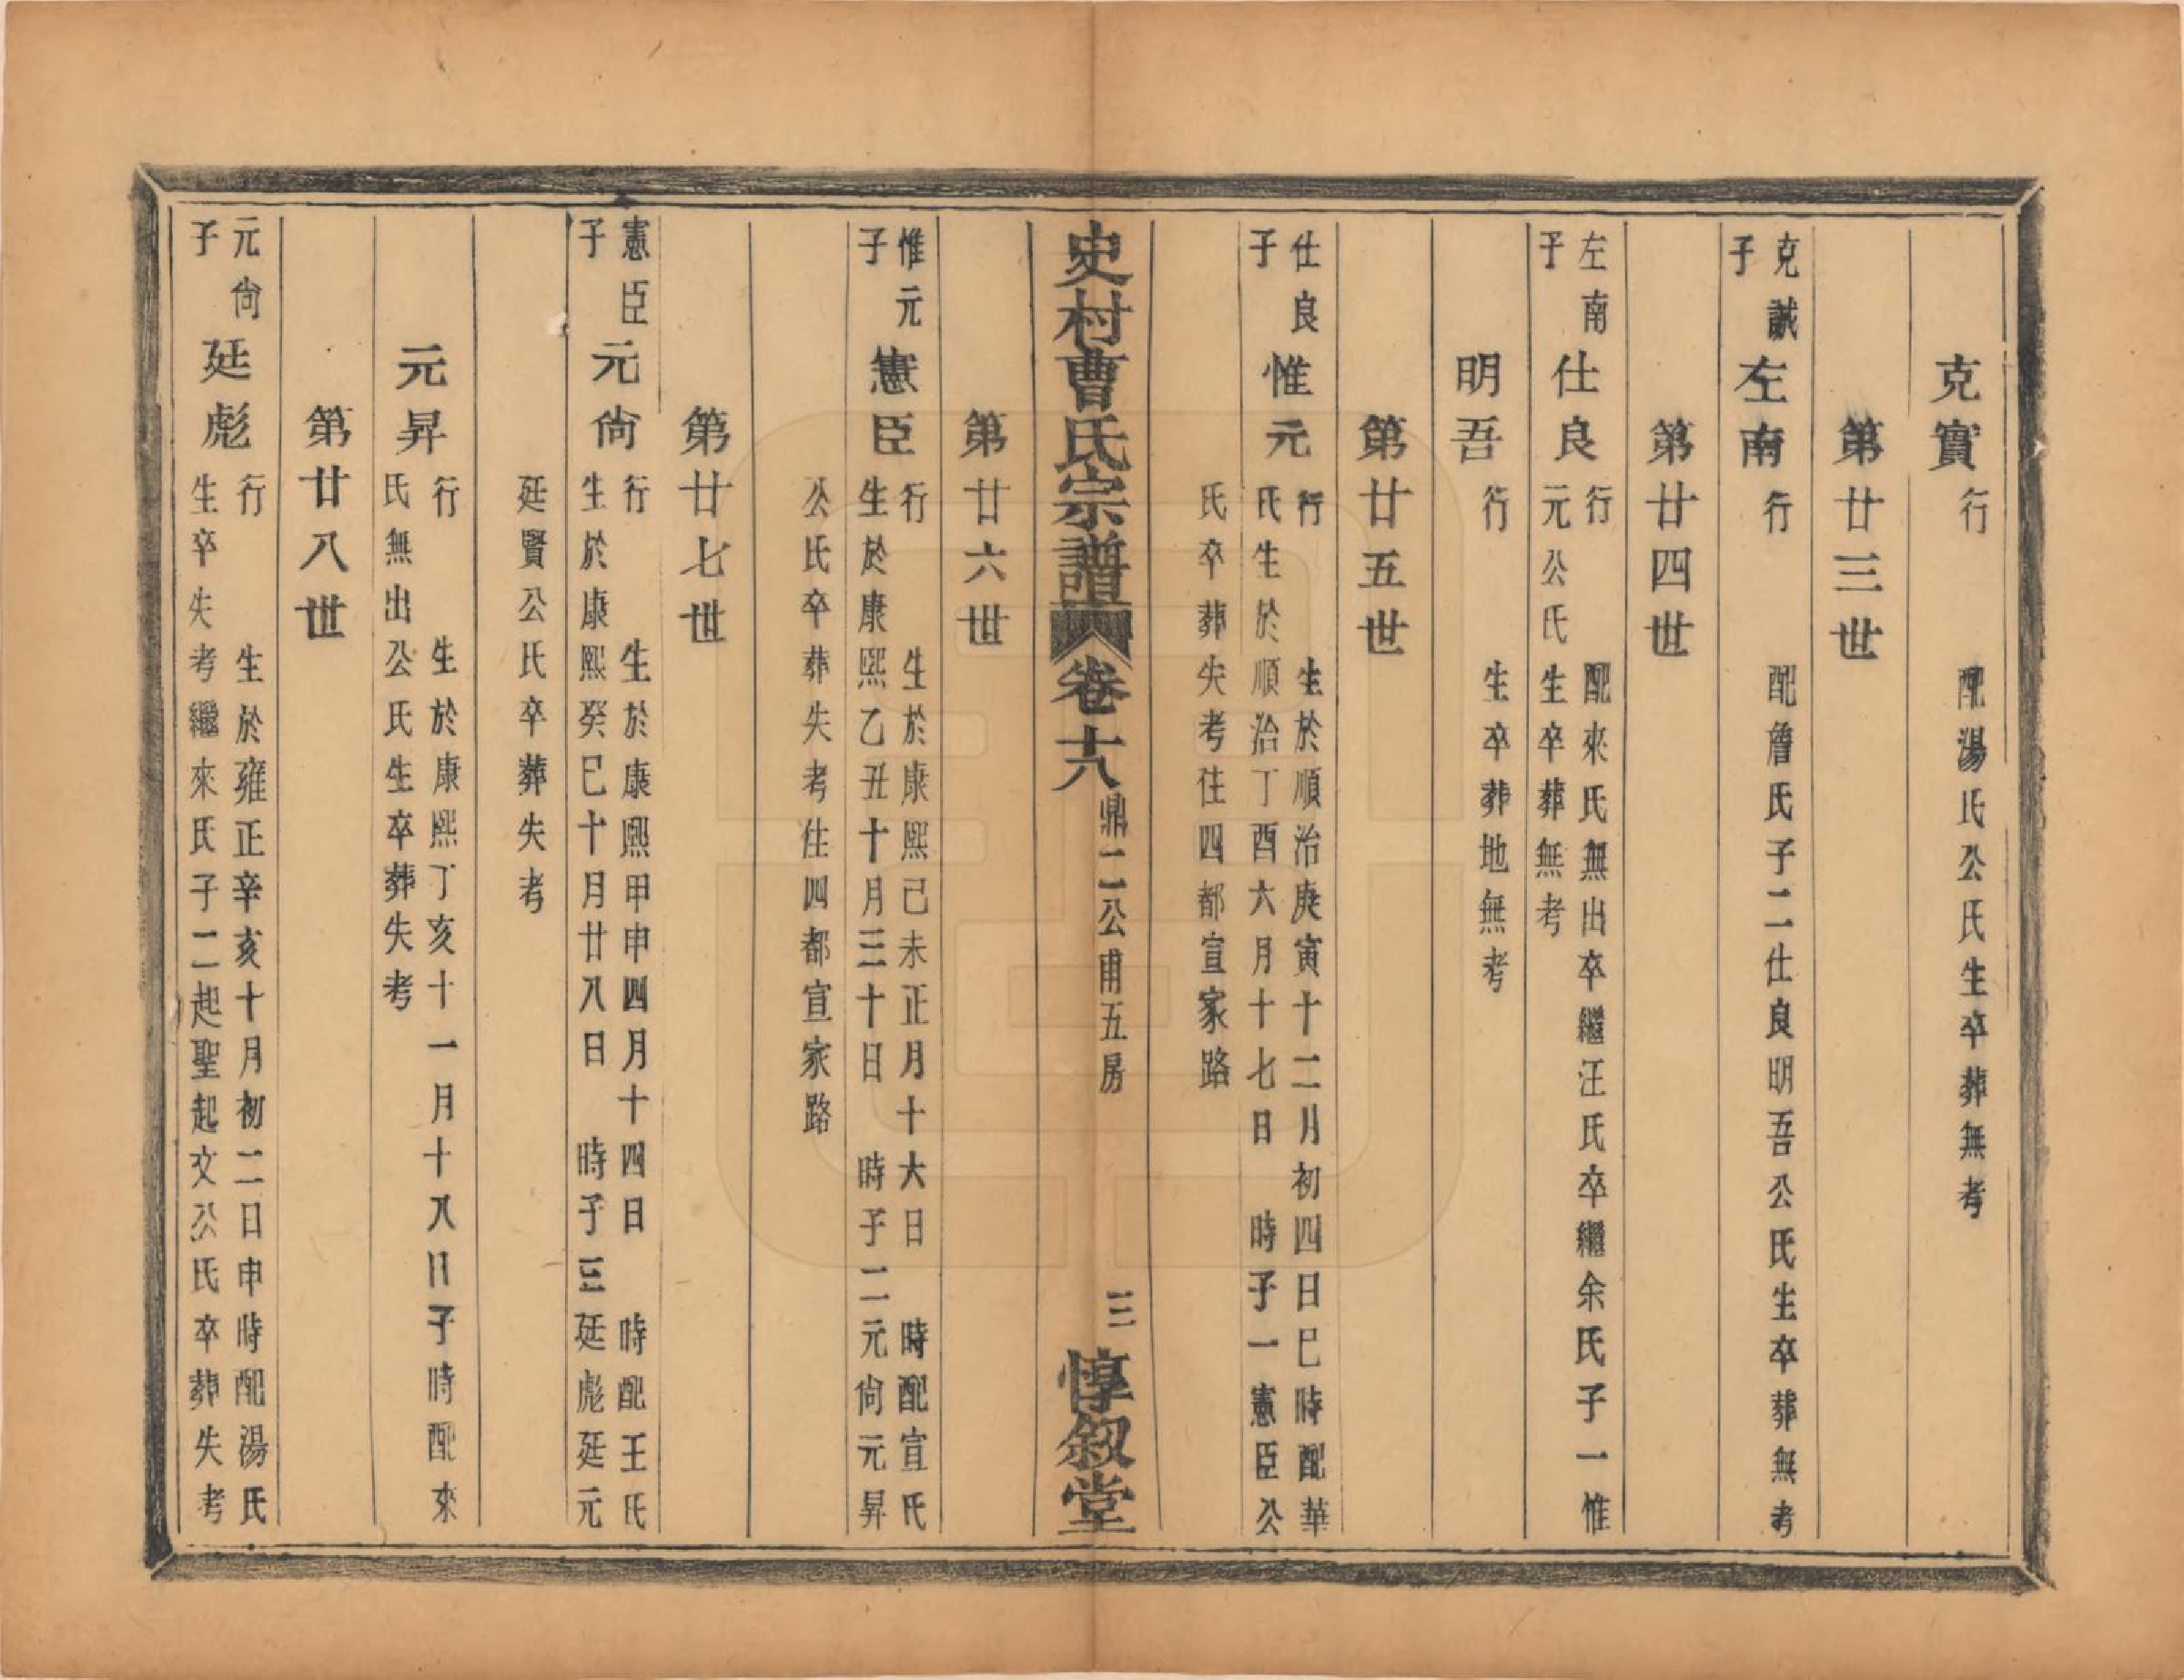 克實 行 配湯氏公氏生卒葬無考
第廿三世
克誠子 左南 行 配詹氏子二仕良明吾公氏生卒葬無考
第廿四世
左南子 仕良 行 配來氏無出卒繼汪氏卒繼余氏子一惟
元公氏生卒葬無考
明吾 行 生卒葬地無考
第廿五世
仕良子 惟元 行 生於順治庚寅十二月初四日巳時配華
氏生於順治丁酉六月十七日 時子一憲臣公
氏卒葬失考住四都宣家路
史村曹氏宗譜 卷十六 鼎二公甫五房 三 惇敘堂
第廿六世
惟元子 憲臣 行 生於康熙己未正月十六日 時配宣氏
生於康熙乙丑十月三十日 時子二元尙元昇
公氏卒葬失考住四都宣家路
第廿七世
憲臣子 元尙 行 生於康熙甲申四月十四日 時配王氏
生於康熙癸巳十月廿八日 時子三廷彪廷元
廷賢公氏卒葬失考
元昇 行 生於康熙丁亥十一月十八日子時配來
氏無出公氏生卒葬失考
第廿八世
元尙子 廷彪 行 生於雍正辛亥十月初二日申時配湯氏
生卒失考繼來氏子二起聖起文公氏卒葬失考